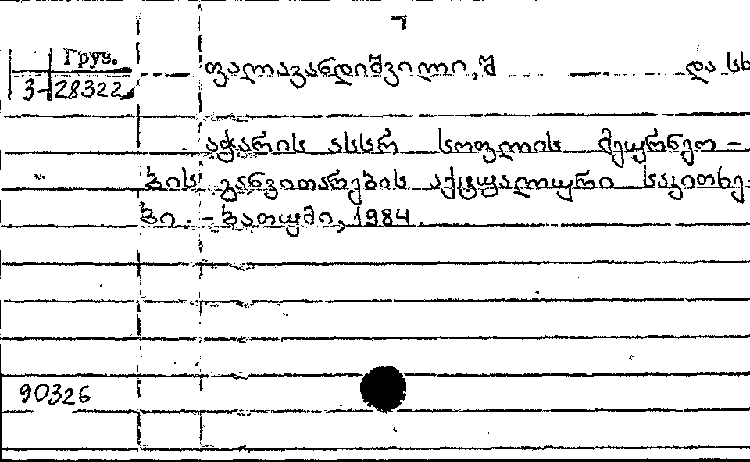 Груз.
3-28322
ფალავანდიშვილი, შ და სხ
აჭარის ასსრ სოფლის მეურნეო-
ბის განვითარების აქტუალური საკითხე-
ბი. - ბათუმი, 1984.
90326